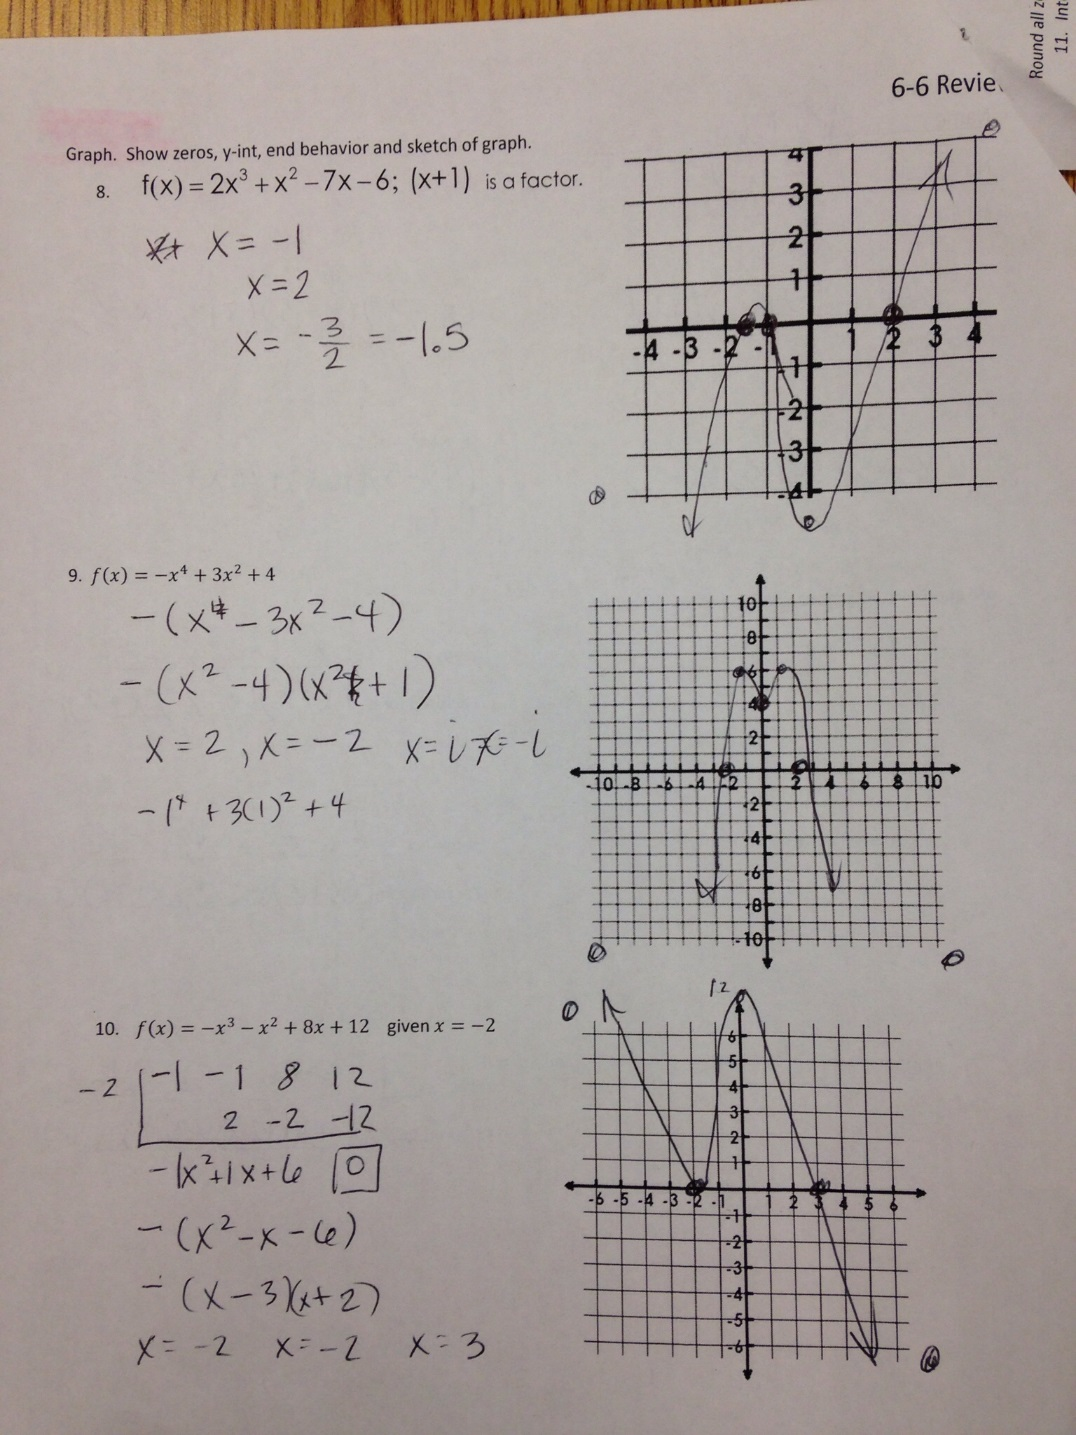 Round all z
11. Int
6-6 Revie
Graph. Show zeros, y-int, end behavior and sketch of graph.
8. f(x) = 2x³ + x² – 7x – 6; (x+1) is a factor.
x = -1
x = 2
x = -3/2 = -1.5
4
3
2
1
-4 -3 -2 -1 1 2 3 4
-1
-2
-3
-4
9. f(x) = −x⁴ + 3x² + 4
-(x⁴ - 3x² - 4)
-(x² - 4)(x² + 1)
x = 2, x = -2 x = i x = -i
-1⁴ + 3(1)² + 4
10
8
6
4
2
-10 -8 -6 -4 -2 2 4 6 8 10
-2
-4
-6
-8
-10
10. f(x) = −x³ − x² + 8x + 12 given x = −2
-2 -1 -1 8 12
2 -2 -12
-1x² + 1x + 6 0
-(x² - x - 6)
-(x - 3)(x + 2)
x = -2 x = -2 x = 3
12
6
5
4
3
2
1
-6 -5 -4 -3 -2 -1 1 2 3 4 5 6
-1
-2
-3
-4
-5
-6